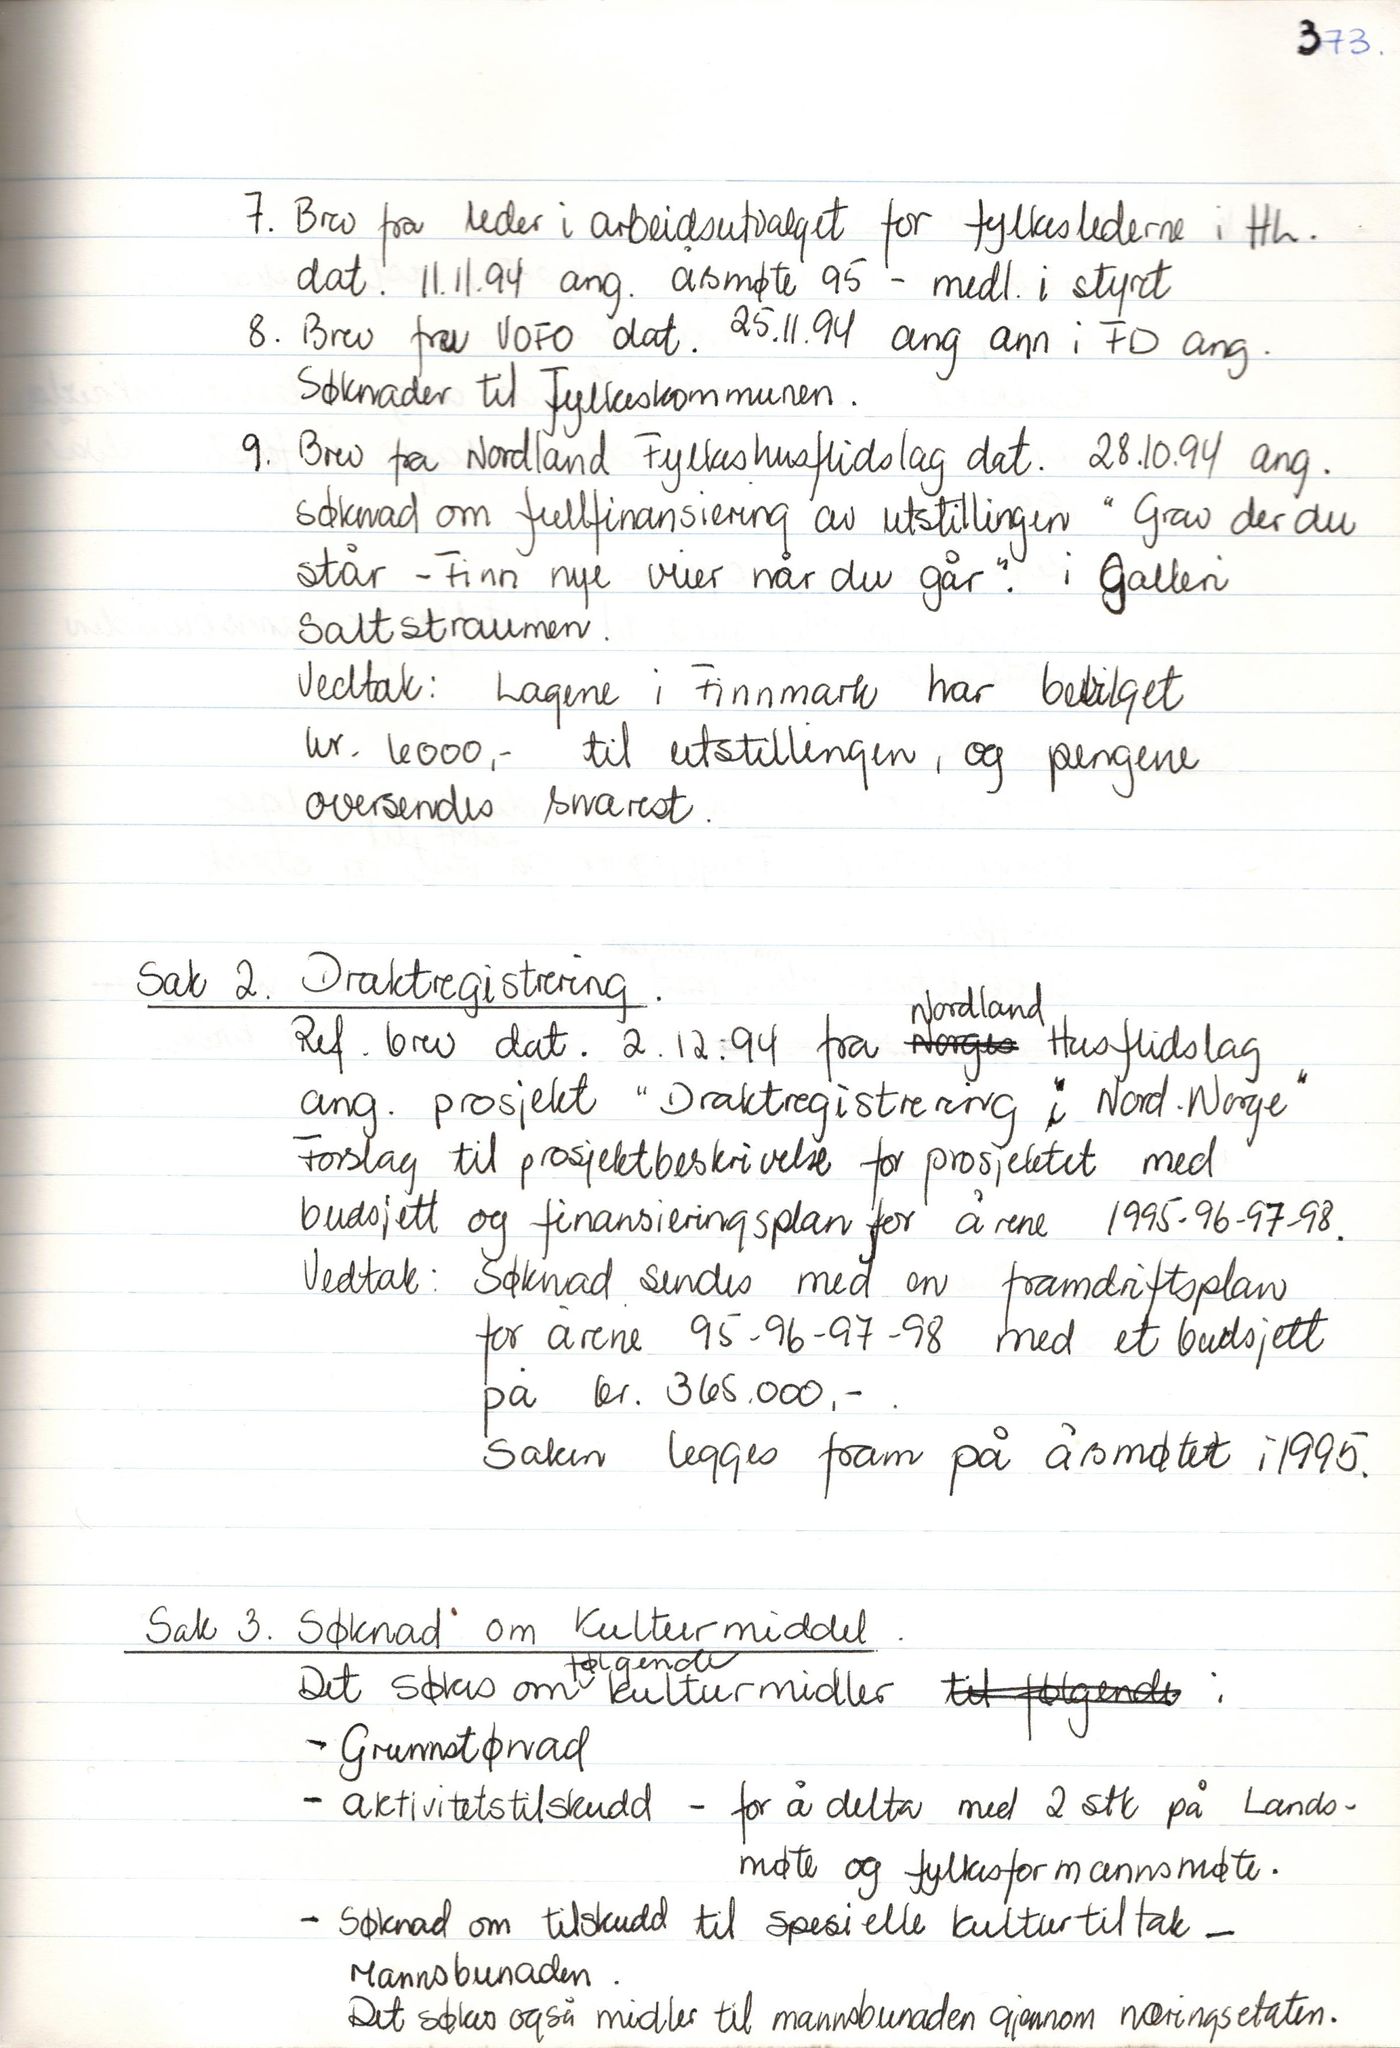 373.
7. Brev fra leder i arbeidsutvalget for fylkeslederne i HL.
dat. 11.11.94 ang. årsmøte 95 - medl. i styret
8. Brev fra VOFO dat. 25.11.94 ang ann i FD ang.
Søknader til Fylkeskommunen.
9. Brev fra Nordland Fylkeshusflidslag dat. 28.10.94 ang.
søknad om fullfinansiering av utstillingen "Grav der du
står - Finn nye veier når du går". i Galleri
Saltstraumen.
Vedtak: Lagene i Finnmark har bevilget
kr. 6000,- til utstillingen, og pengene
oversendes snarest.
Sak 2. Draktregistrering.
Nordland
Ref. brev dat. 2.12.94 fra Norges Husflidslag
ang. prosjekt "Draktregistrering i Nord-Norge"
Forslag til prosjektbeskrivelse for prosjektet med
budsjett og finansieringsplan for årene 1995-96-97-98.
Vedtak: Søknad sendes med en framdriftsplan
for årene 95-96-97-98 med et budsjett
på kr. 365.000,-.
Saken legges fram på årsmøtet i 1995.
Sak 3. Søknad om Kulturmiddel.
følgende
Det søkes om kulturmidler til følgende :
- Grunnstønad
- aktivitetstilskudd - for å delta med 2 stk på Lands-
møte og fylkesformannsmøte.
- Søknad om tilskudd til spesielle kulturtiltak -
Mannsbunaden.
Det søkes også midler til mannsbunaden gjennom næringsetaten.